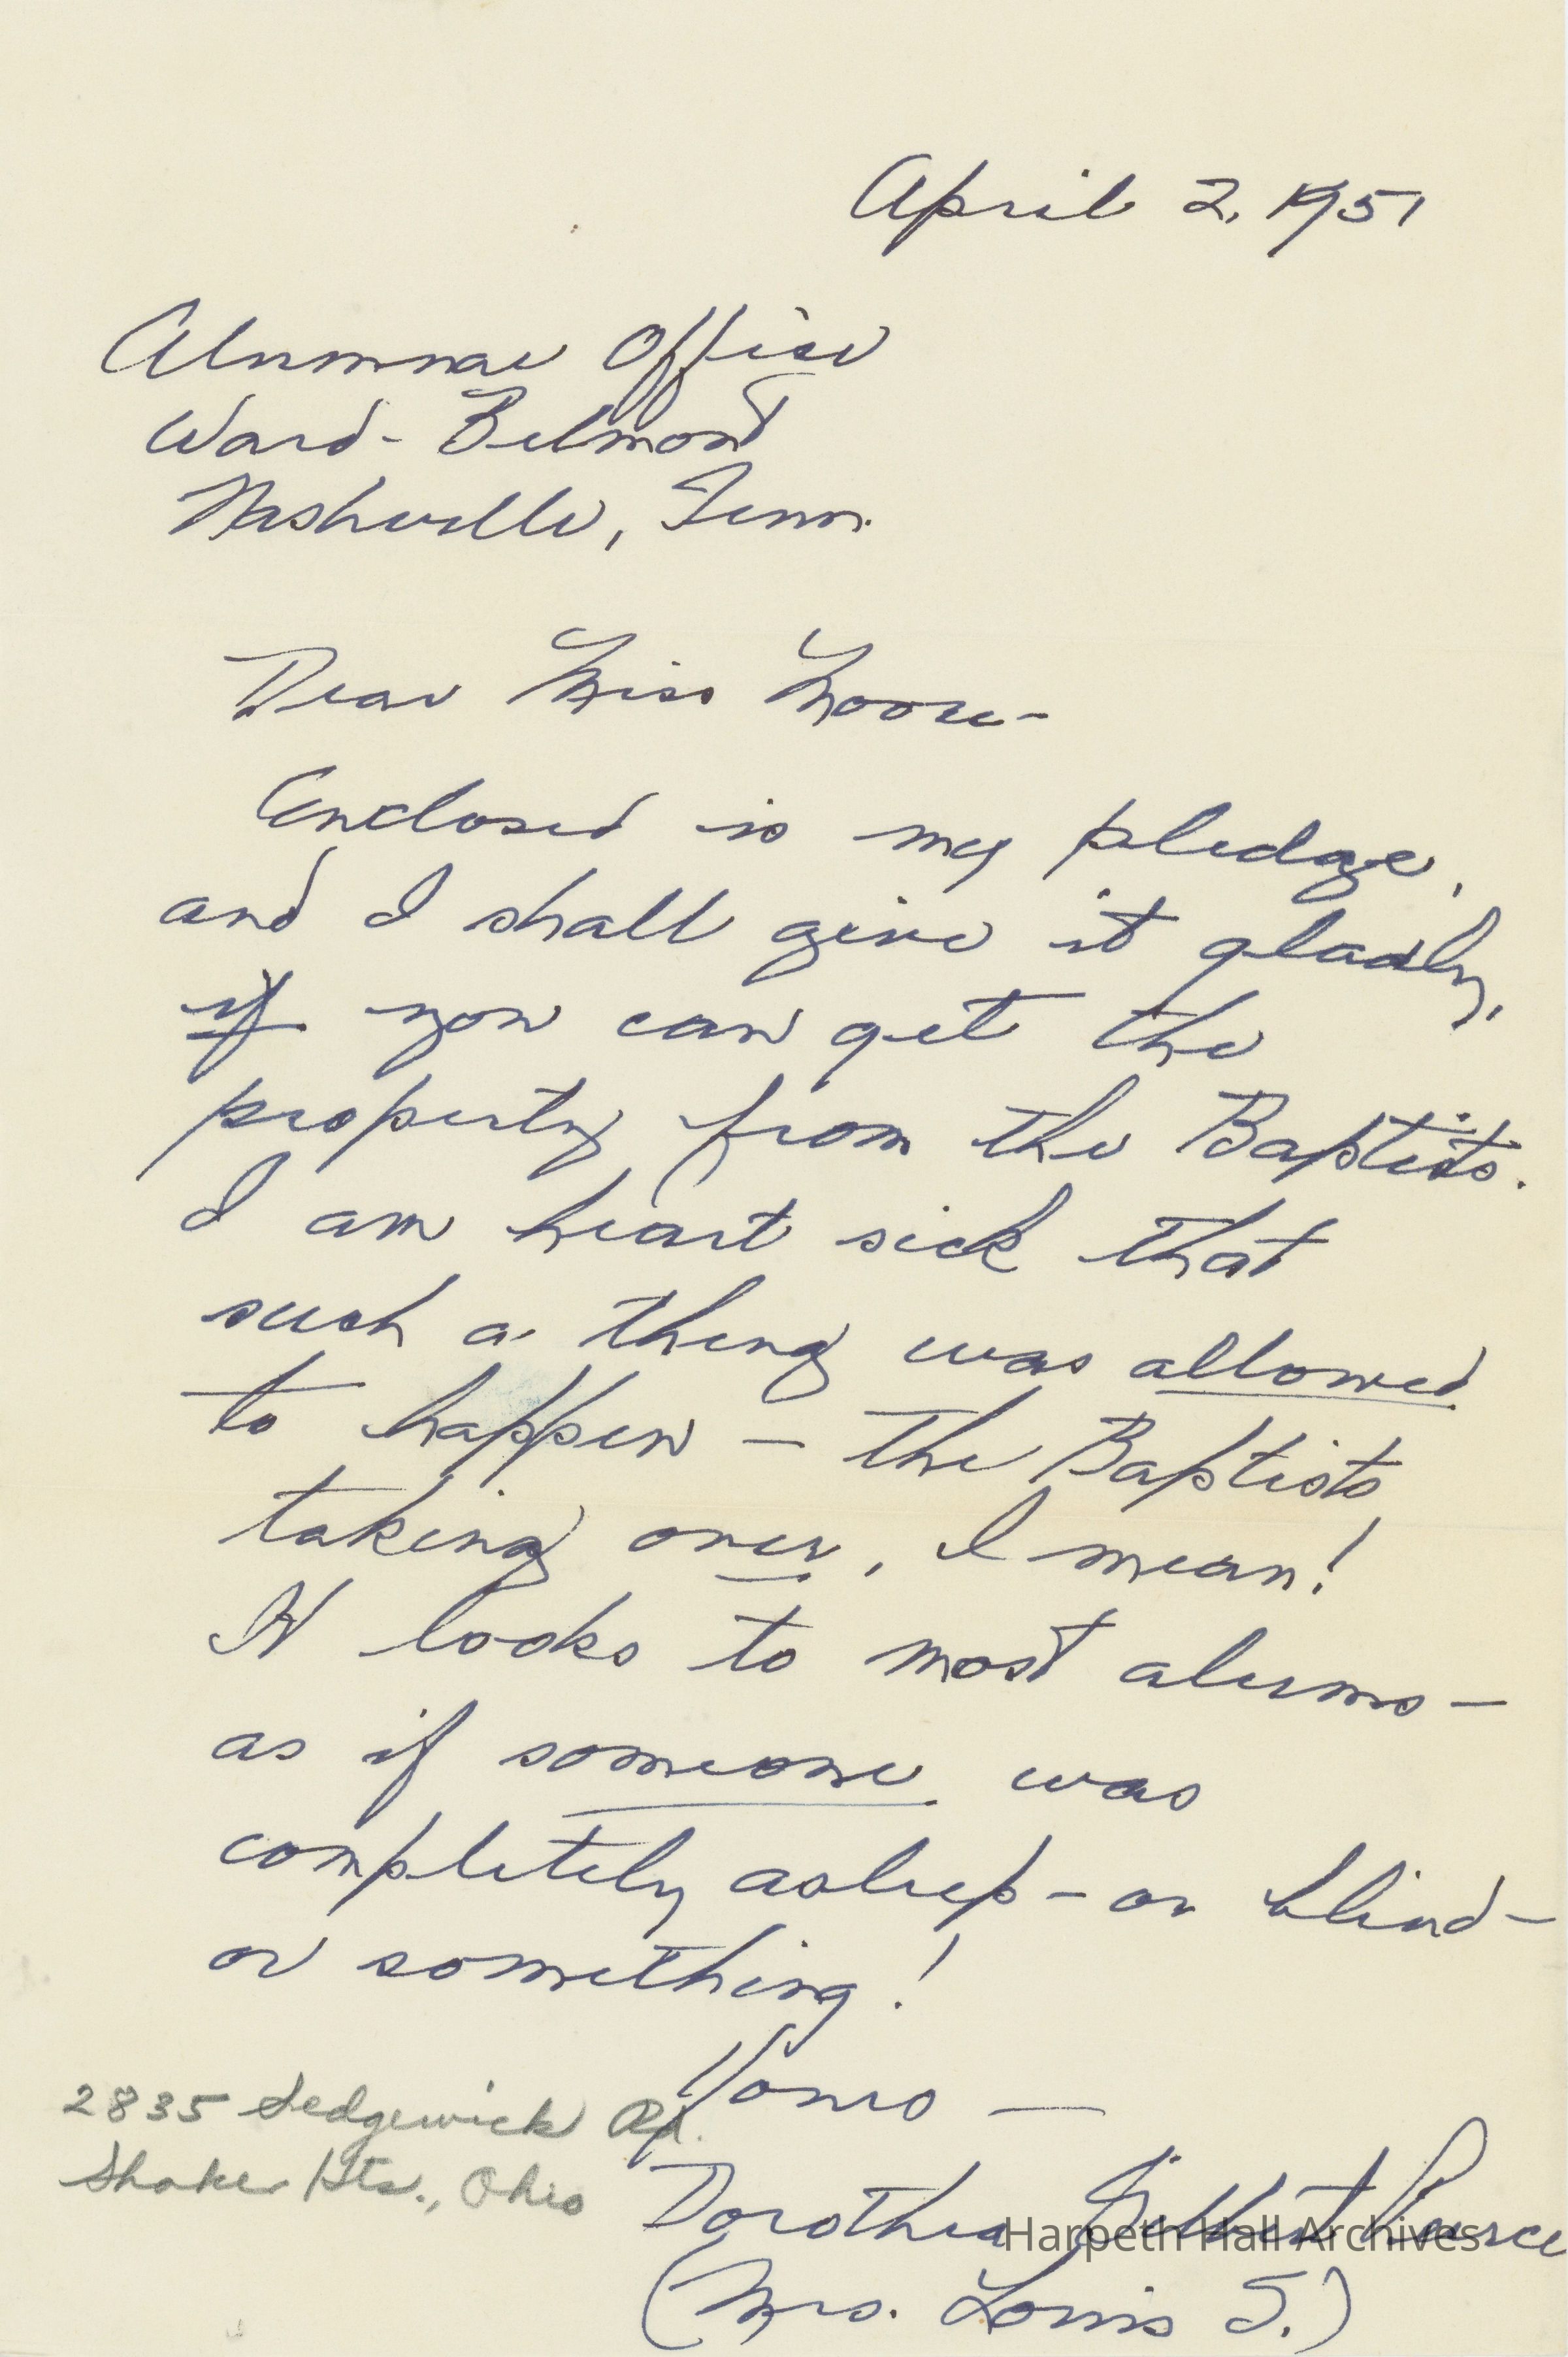 April 2, 1951
Alumnae Office
Ward-Belmont
Nashville, Tenn.
Dear Miss Moore-
Enclosed is my pledge,
and I shall give it gladly,
if you can get the
property from the Baptists.
I am heart sick that
such a thing was allowed
to happen — the Baptists
taking over, I mean!
It looks to most alums—
as if someone was
completely asleep - or blind -
or something!
Yours —
2835 Sedgewick Rd.
Shaker Hts., Ohio
Dorothea Gilbert Pierce
Harpeth Hall Archives
(Mrs. Louis S.)